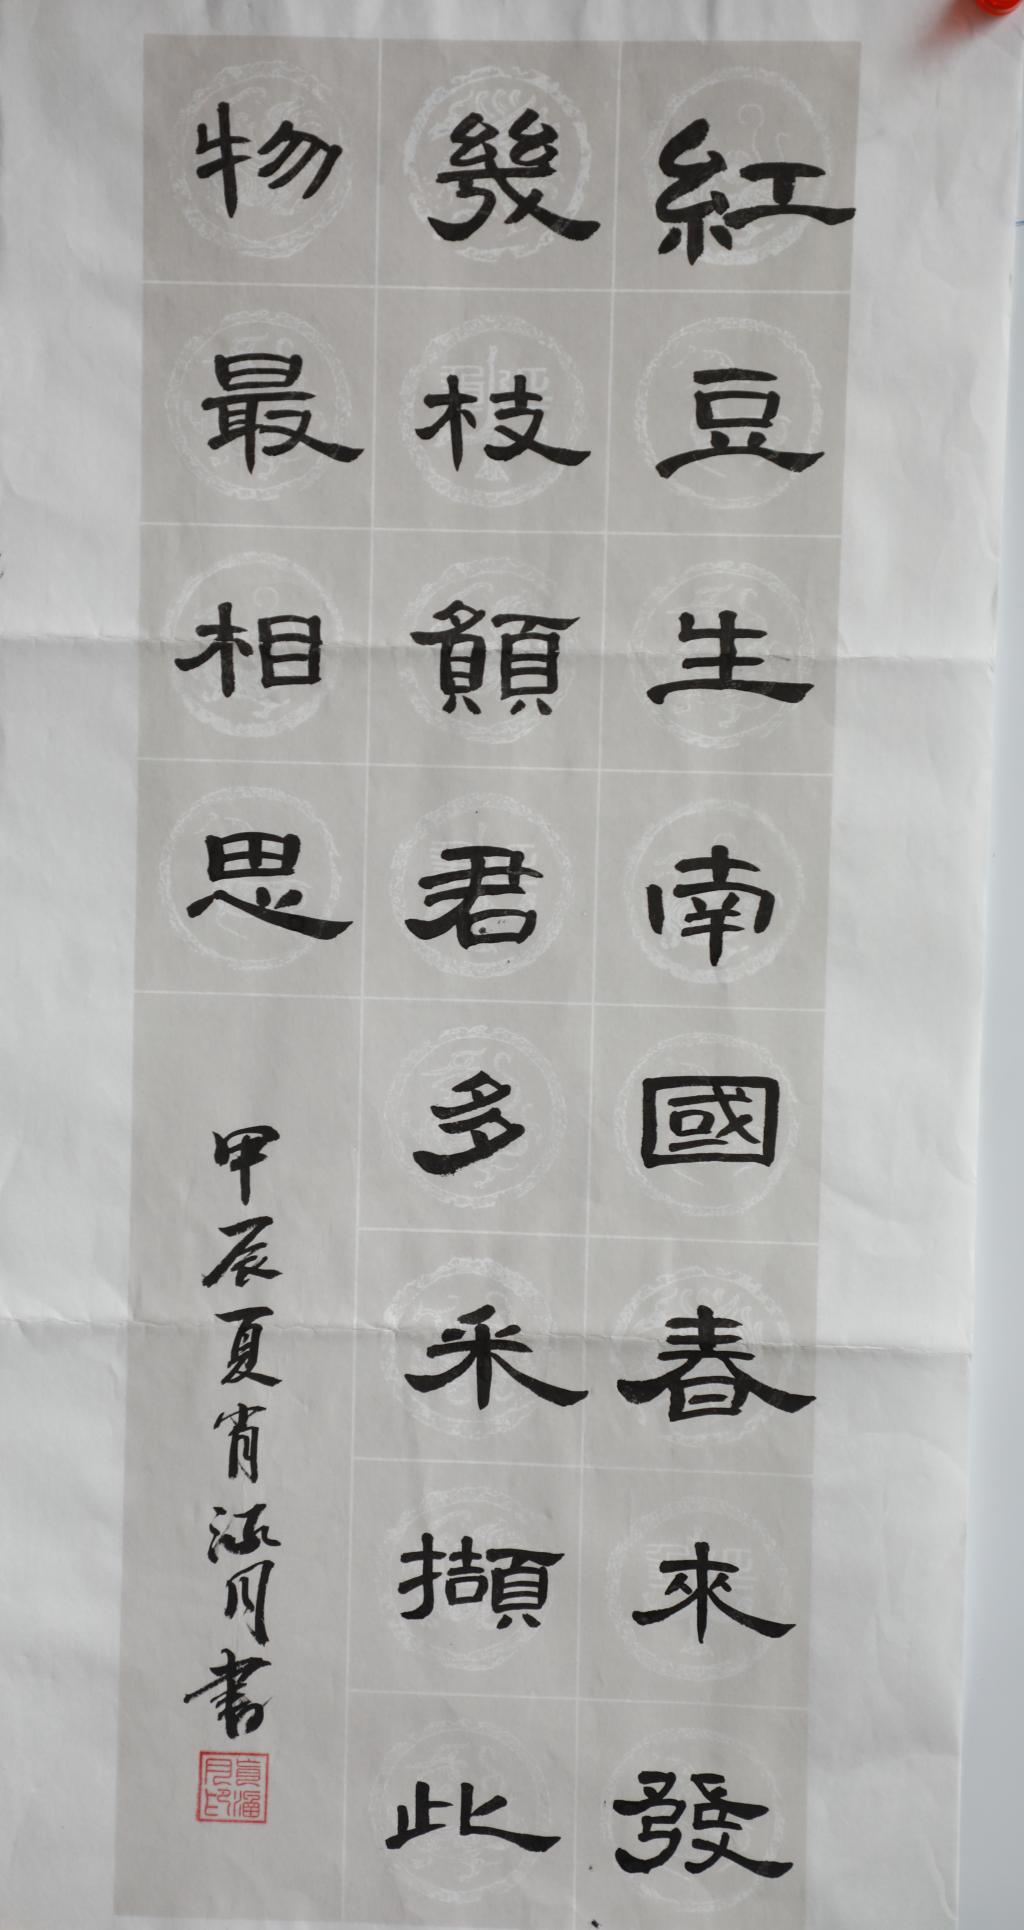 紅豆生南國春來發
幾枝願君多采擷此
物最相思
甲辰夏肖涵月書